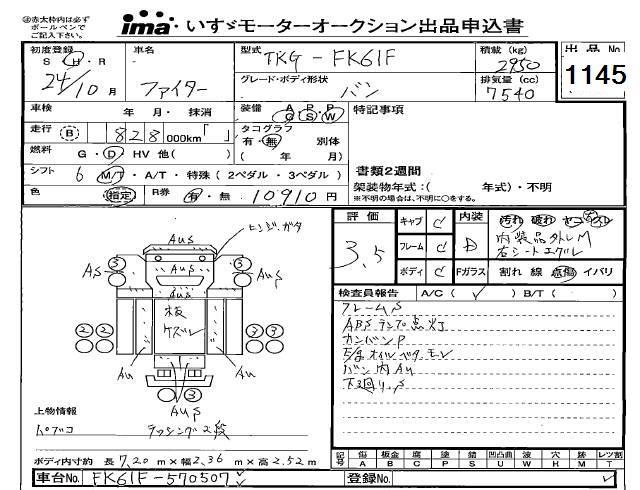 ※赤太枠内は必ず
ボールペンで
ご記入下さい。
ima いすゞモーターオークション出品申込書
初度登録
S・H・R
24/10月
車名
ファイター
型式
TKG-FK61F
グレード・ボディ形状
バン
積載(kg)
2950
排気量(cc)
7540
出品No
1145
車検 年 月・抹消
装備 A P P
G S W
特記事項
走行 B 828 000km「 」
タコグラフ
有・無 別体
( 年 月)
燃料 G・D・HV 他( )
書類2週間
シフト 6 M/T・A/T・特殊(2ペダル・3ペダル)
架装物年式:( 年式)・不明
※不明の場合は、不明に○をする。
色 指定 R券 有・無 10910円
評価
3.5
キャブ C
フレーム C
ボディ C
内装 D
Fガラス
汚れ 破れ
内装品外レM
右シートエグレ
割れ 線 点傷 イバリ
検査員報告 A/C( ✓ ) B/T( )
フレームS
ABSランプ点灯
カンバンP
E/gオイルベタモレ
バン内AU
下廻り.S
ヒンジ.ガタ
AUS
3 3
AS
AUS
板
ケズレ
2 2
3 3
AU
AU
3
AUS
上物情報
トプコ ラッシング2段
ボディ内寸約 長7.20m×幅2.36m×高2.52m
記号 傷A 板金B 腐C 塗P 錆S 凹凸曲U 波W 穴H 跡M レツ割T
車台No. FK61F-570507
登録No.